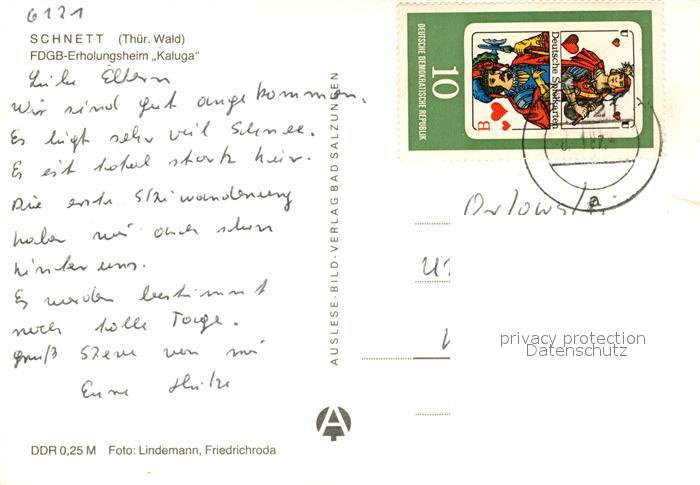 6121
SCHNETT (Thür. Wald)
FDGB-Erholungsheim „Kaluga“
Liebe Eltern
Wir sind gut angekommen.
Es liegt sehr viel Schnee.
Es ist total stark hier.
Die erste Skiwanderung
haben wir auch schon
hinter uns.
Es werden bestimmt
noch tolle Tage.
Gruß von
Eure
DDR 0,25 M Foto: Lindemann, Friedrichroda
AUSLESE-BILD-VERLAG BAD SALZUNGEN
DEUTSCHE DEMOKRATISCHE REPUBLIK
10
Deutsche Spielkarten
B
U
U
U
U
a
Orlowski
privacy protection
Datenschutz